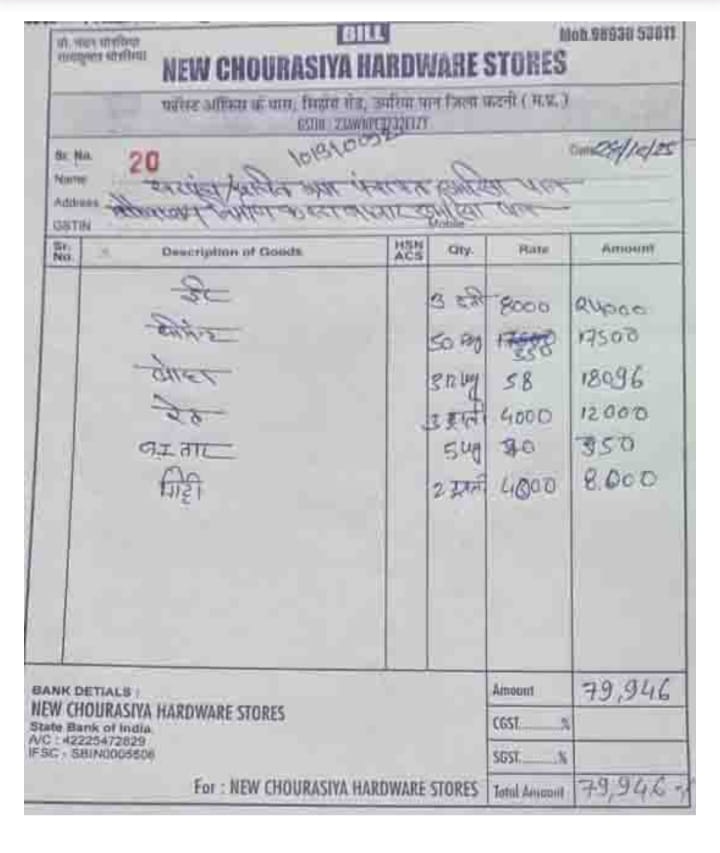 BILL
Mob. 98930 53011
प्रो. चंदन चौरसिया
रामकुमार चौरसिया
NEW CHOURASIYA HARDWARE STORES
पोस्ट ऑफिस के पास, सिहोरा रोड, उमरिया पान जिला कटनी ( म.प्र. )
GSTIN :
Sr. No. 20
Date 29/10/25
Name सरपंच/सचिव ग्राम पंचायत उमरिया पान
Address निर्माण उमरिया पान
GSTIN Mobile
Sr. No. Description of Goods HSN ACS Qty. Rate Amount
ईट 3 8000 24000
सीमेन्ट 50 350 17500
लोहा 312 kg 58 18096
रेत 3 4000 12000
तार 5 kg 350
गिट्टी 2 4000 8.000
Amount 79,946
BANK DETIALS :
NEW CHOURASIYA HARDWARE STORES
State Bank of India
CGST.........%
A/C : 42225472829
IFSC - SBIN0005508
SGST.........%
For : NEW CHOURASIYA HARDWARE STORES Total Amount 79,946-/